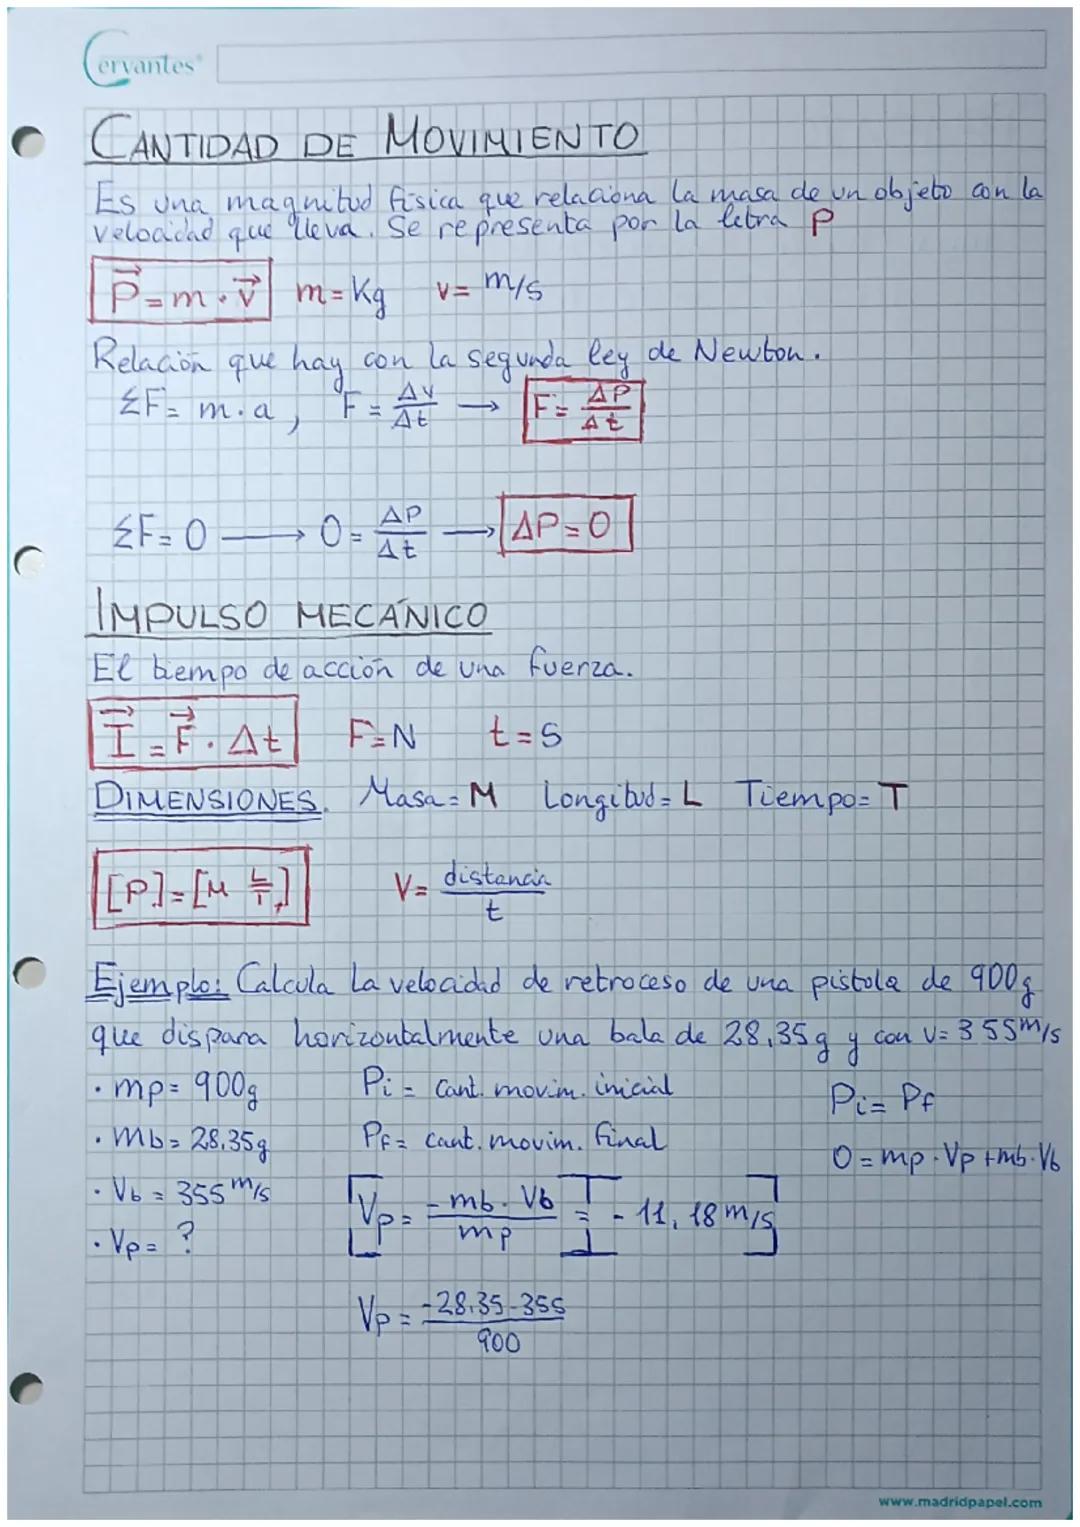 Cervantes
CANTIDAD DE MOVIMIENTO
Es una magnitud física que relaciona la masa de un objeto con la
velocidad que lleva. Se representa por la letra P
P⃗ = m · v⃗   m = Kg   v = m/s
Relación que hay con la segunda ley de Newton.
ΣF = m · a ,   F = ΔV/Δt → F = ΔP/Δt
ΣF = 0 → 0 = ΔP/Δt → ΔP = 0
IMPULSO MECÁNICO
El tiempo de acción de una fuerza.
I⃗ = F⃗ · Δt   F = N   t = S
DIMENSIONES. Masa = M   Longitud = L   Tiempo = T
[P] = [M L/T]   V = distancia/t
Ejemplo: Calcula la velocidad de retroceso de una pistola de 900g
que dispara horizontalmente una bala de 28,35g y con v = 355 m/s
· mp = 900g   Pi = Cant. movim. inicial   Pi = Pf
· mb = 28,35g   Pf = cant. movim. final   0 = mp · Vp + mb · Vb
· Vb = 355 m/s   Vp = -mb · Vb/mp = -11,18 m/s
· Vp = ?
Vp = -28,35 · 355/900
www.madridpapel.com